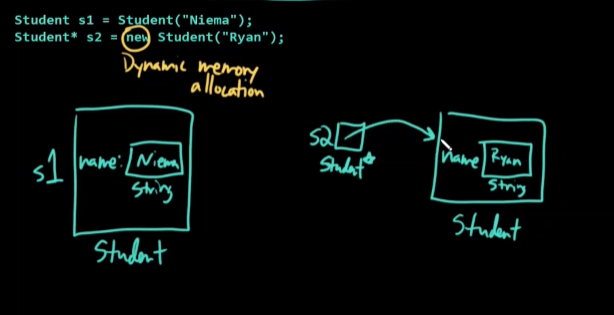 Student s1 = Student("Niema");
Student* s2 = new Student("Ryan");
Dynamic memory
allocation
s1
name: Niema
String
Student
s2
Student*
name Ryan
String
Student